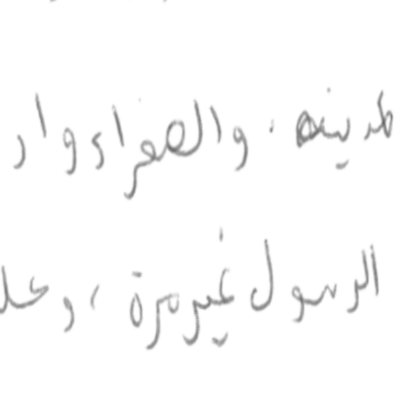 لمدينه . والصفراء واد
الرسول غير مرة ، وعلـ